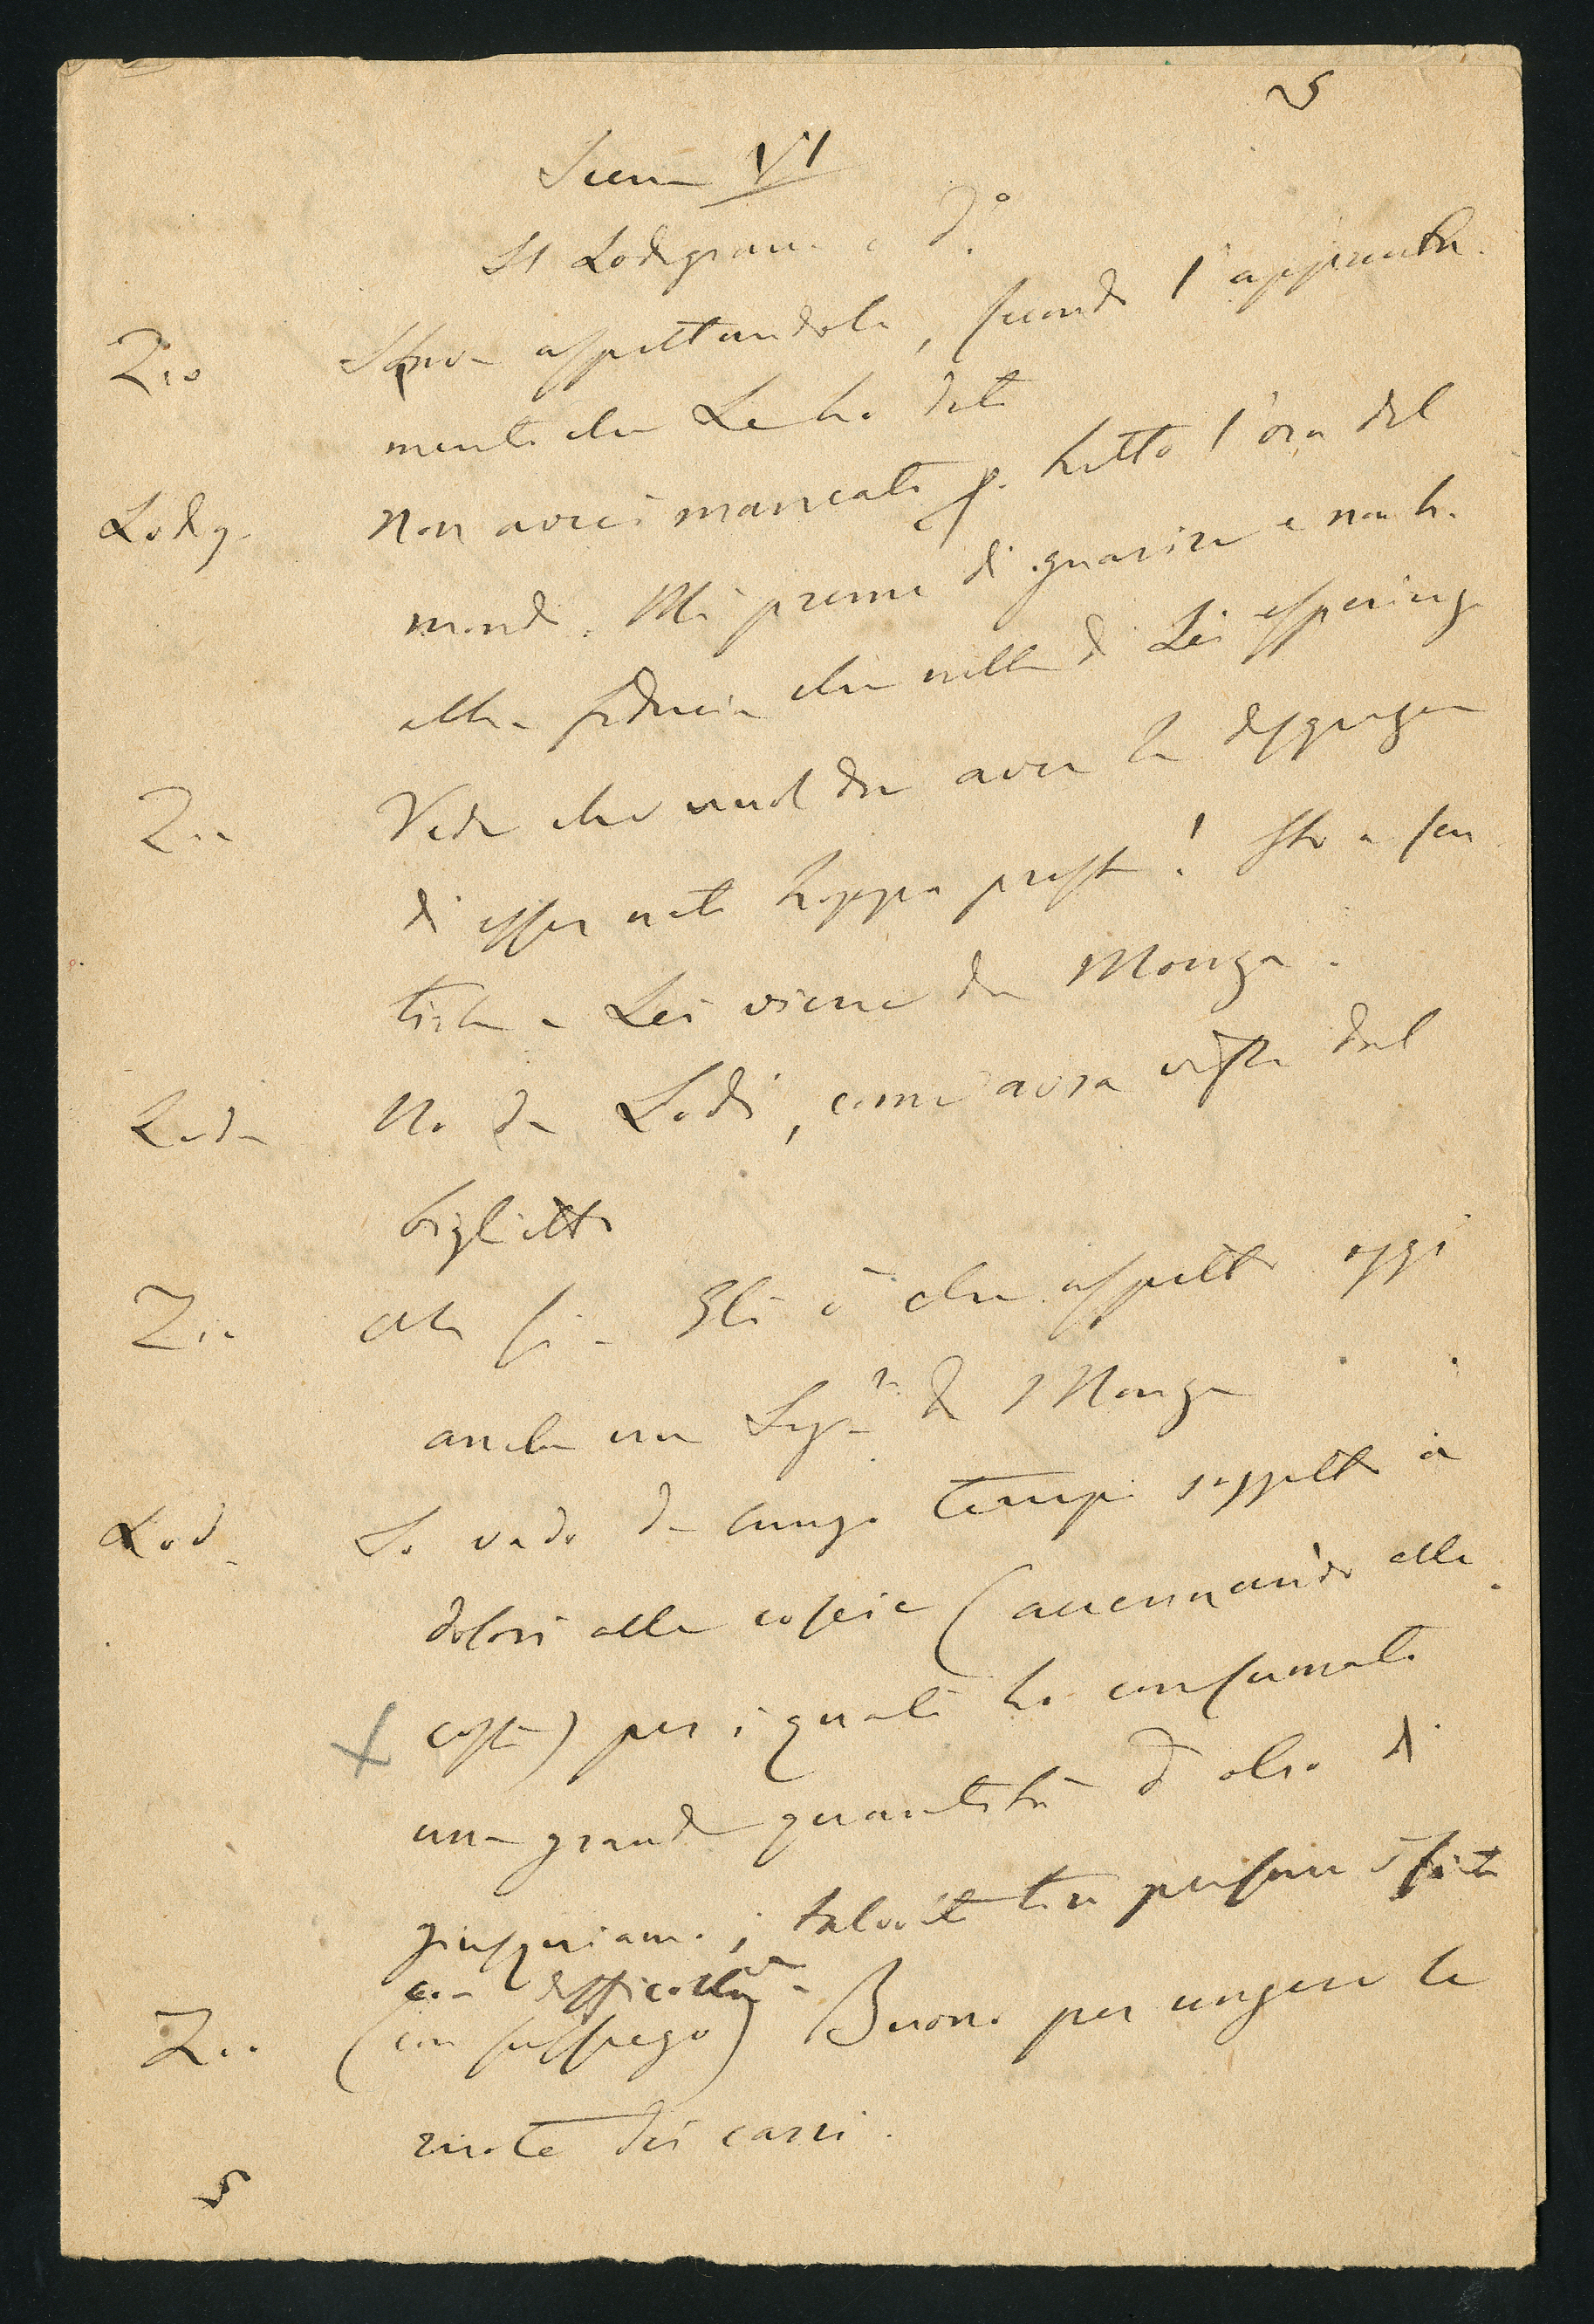 5
Scena VI
Il Lodigiano e d.º
Zio Stavo aspettandola, secondo l'appunta-
mento che Le ho dato
Lodig. Non avrei mancato p. tutto l'oro del
mondo. Mi preme di guarire e non ho
altra fiducia che nella di Lei esperienza
Zio Vede che vuol dire aver la disgrazia
di esser nato troppo presto! Sto a sen
tirla - Lei viene da Monza.
Lodi No da Lodi, come avrà visto dal
biglietto
Zio Ah sì - Gli è che aspetto oggi
anche un Sig.re di Monza
Lod. Io vado da lungo tempo soggetto a
dolori alle coscie (accennando alle
coste) per i quali ho consumato
una grande quantità d'olio di
giusquiamo; talvolta tiro persino il fiato
con difficoltà -
Zio (con sussiego) Buono per ungere le
ruote dei carri.
5